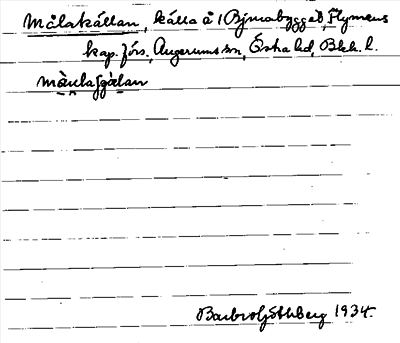 Målakällan, källa å 1 Björnabygget, Flymens
kap. förs., Augerums sn, Östra hd, Blek. l.
Barbro Göthberg 1934.